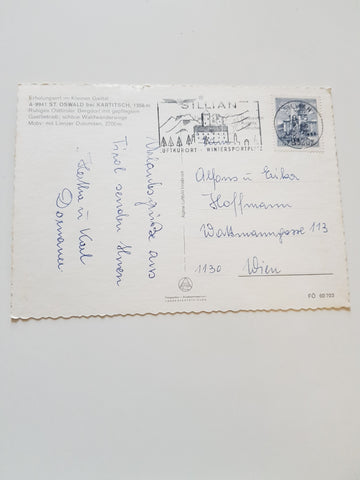 Erholungsort im Kleinen Gailtal
A-9941 ST. OSWALD bei KARTITSCH, 1356 m
Ruhiges Osttiroler Bergdorf mit gepflegtem
Gastbetrieb; schöne Waldwanderwege
Motiv mit Lienzer Dolomiten, 2700m
SILLIAN
LUFTKURORT - WINTERSPORTPLATZ
Urlaubsgrüße aus
Tirol senden Ihnen
Herta u Karl
Alfons u Erika
Hoffmann
Wattmanngasse 113
1130 Wien
FÖ 60703